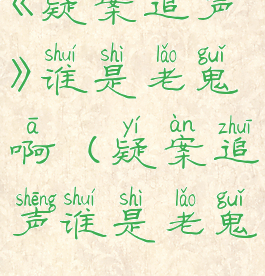 《疑案追声
shuí shì lǎo guǐ
》谁是老鬼
ā yí àn zhuī
啊（疑案追
shēng shuí shì lǎo guǐ
声谁是老鬼